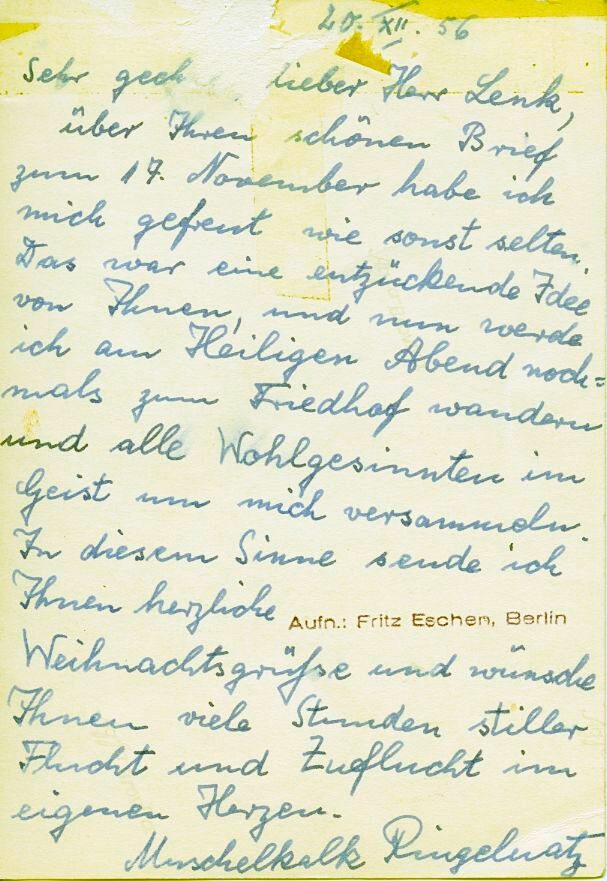 20. XII. 56
Sehr geeh lieber Herr Lenk,
über Ihren schönen Brief
zum 17. November habe ich
mich gefreut wie sonst selten.
Das war eine entzückende Idee
von Ihnen, und nun werde
ich am Heiligen Abend noch=
mals zum Friedhof wandern
und alle Wohlgesinnten im
Geist um mich versammeln.
In diesem Sinne sende ich
Ihnen herzliche
Aufn.: Fritz Eschen, Berlin
Weihnachtsgrüße und wünsche
Ihnen viele Stunden stiller
Flucht und Zuflucht im
eigenen Herzen.
Muschelkalk Ringelnatz